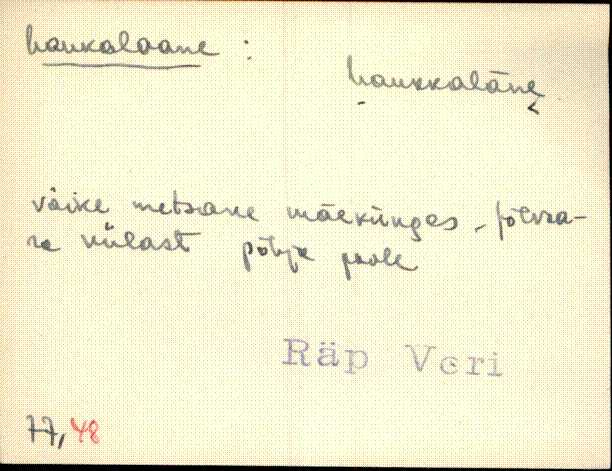 haukalaane :
haukkalāne
väike metsane mäekünges, põlvaa-
re külast põhja poole
Räp Veri
77, 48